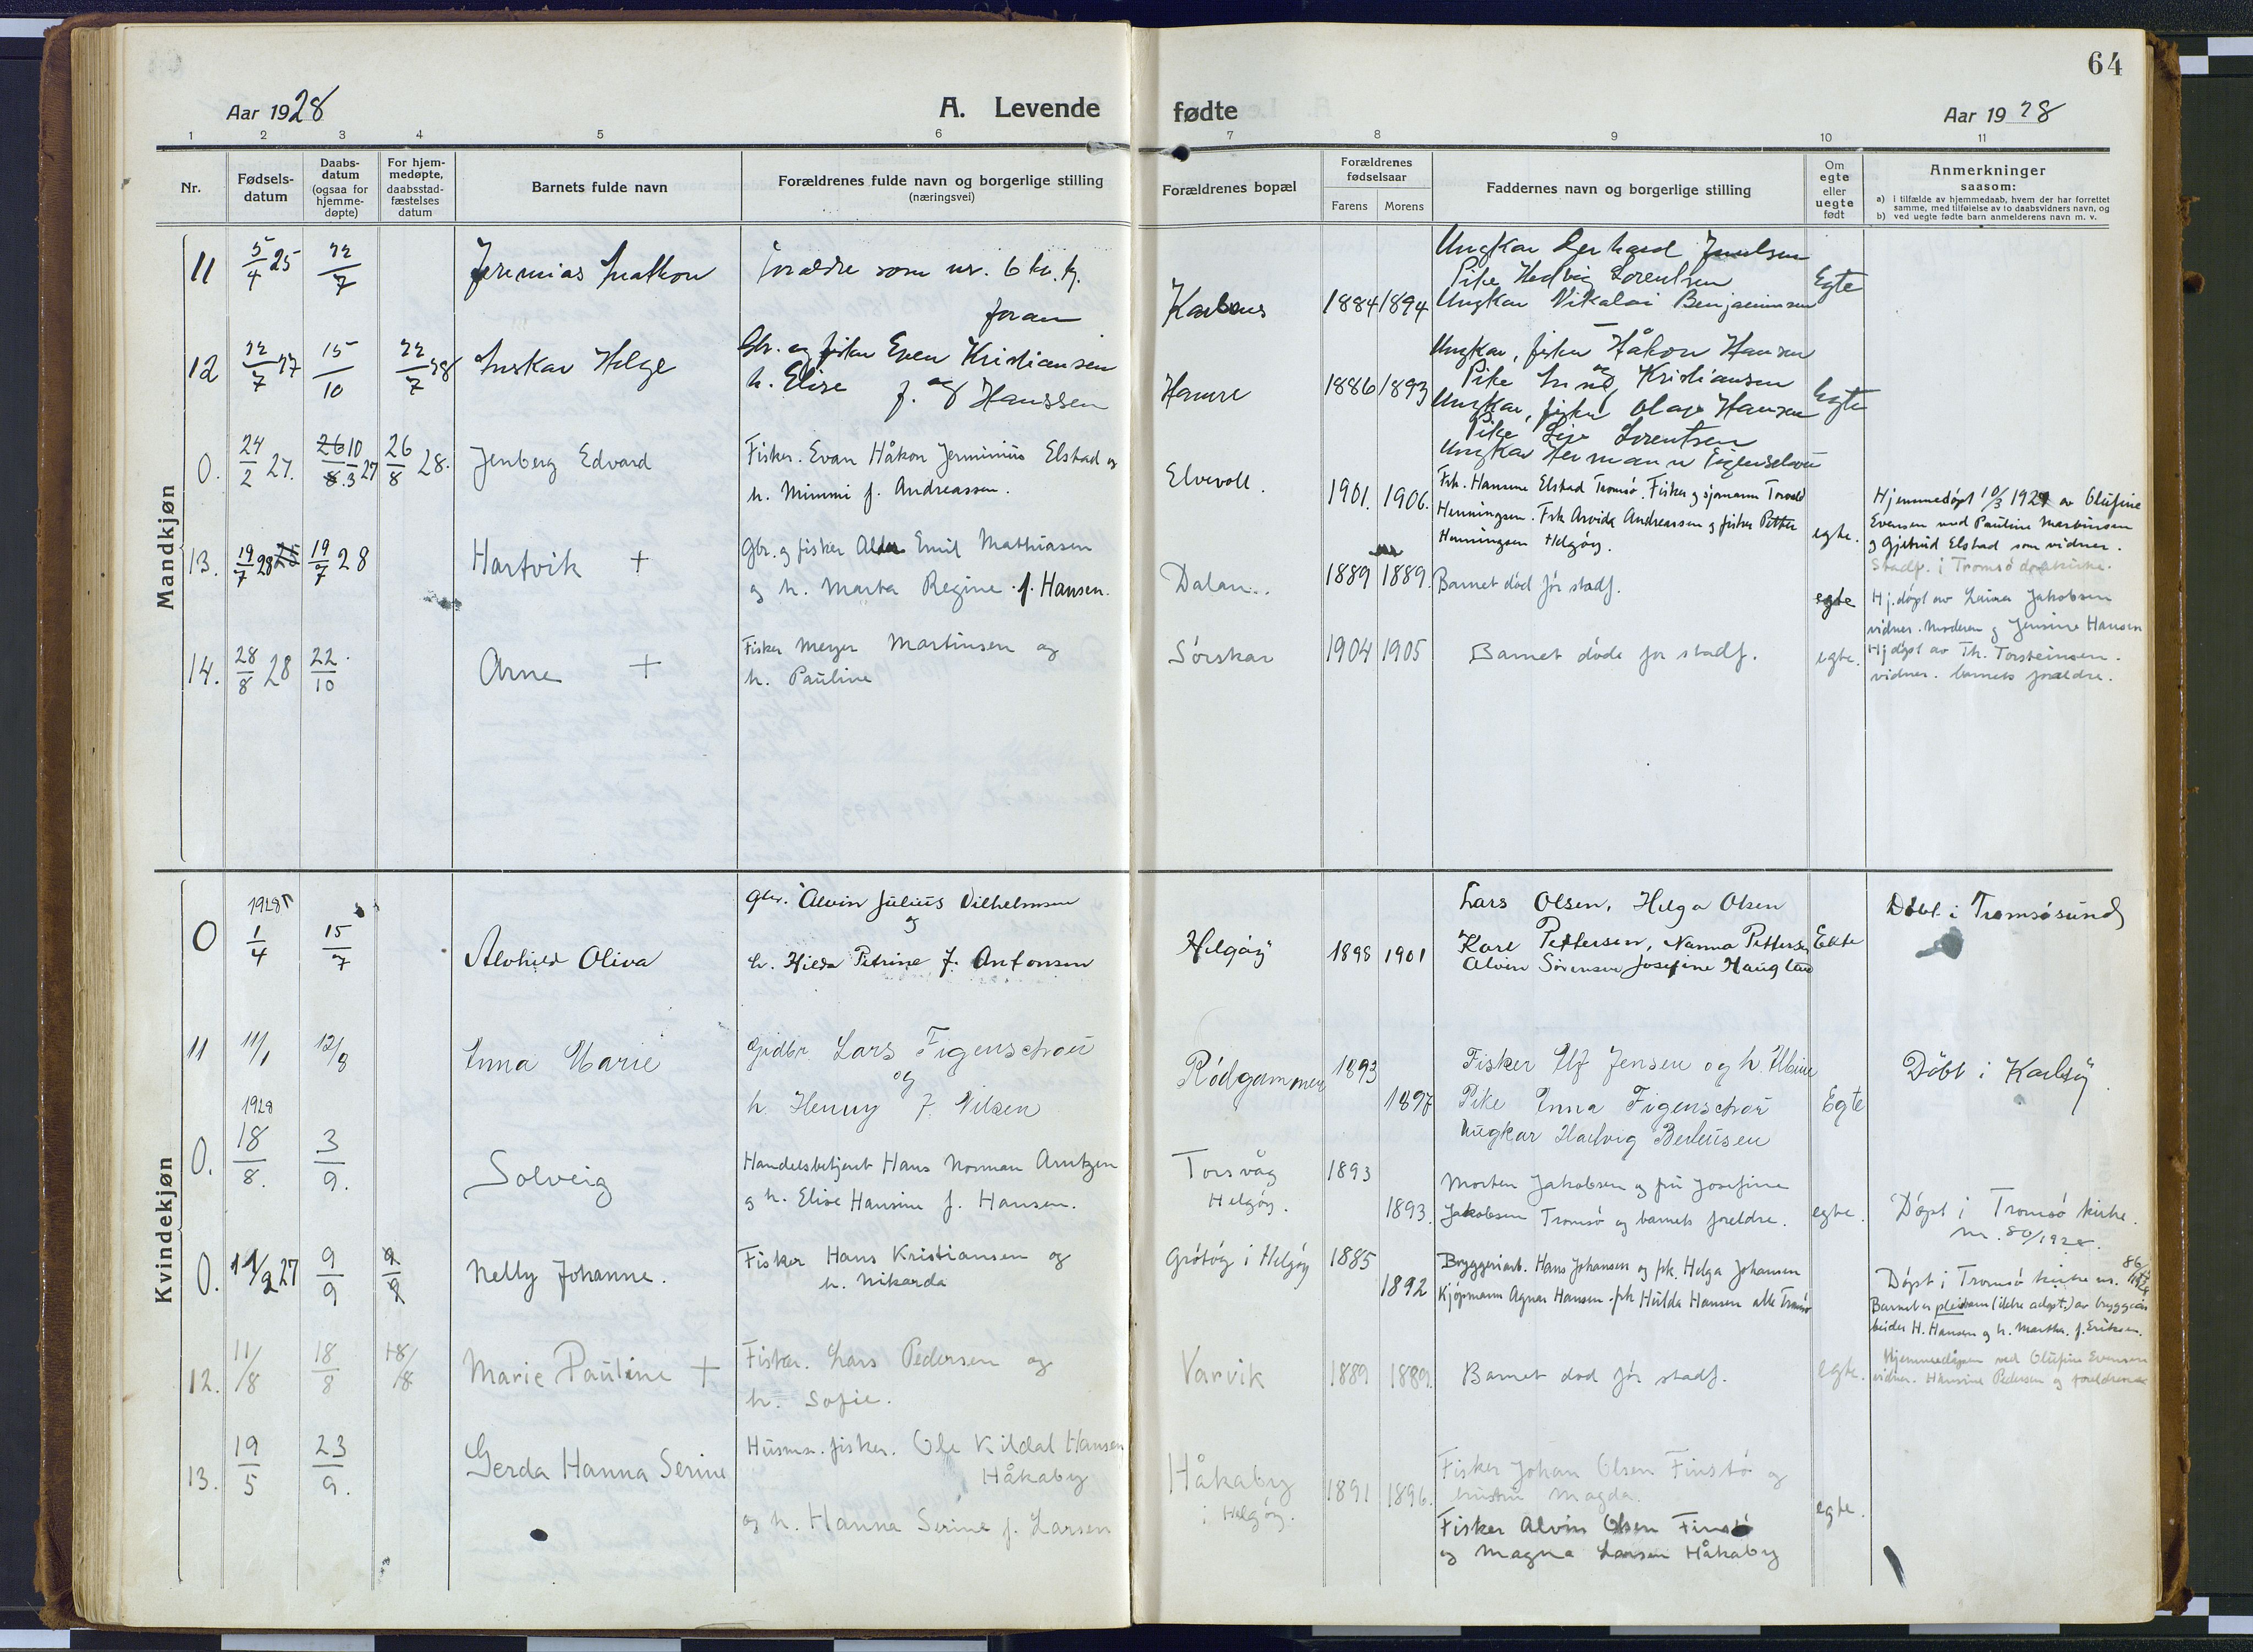 64
Aar 1928
A. Levende
fødte
Aar 1928
1 2 3 4 5 6 7 8 9 10 11
Nr.
Fødsels-
datum
Daabs-
datum
(ogsaa for
hjemme-
døpte)
For hjem-
medøpte,
daabsstad-
fæstelses
datum
Barnets fulde navn
Forældrenes fulde navn og borgerlige stilling
(næringsvei)
Forældrenes bopæl
Forældrenes
fødselsaar
Farens Morens
Faddernes navn og borgerlige stilling
Om
egte
eller
uegte
født
Anmerkninger
saasom:
a) i tilfælde av hjemmedaab, hvem der har forrettet
samme, med tilføielse av to daabsvidners navn, og
b) ved uegte fødte barn anmelderens navn m. v.
Mandkjøn
11 5/4 25 22/7 Jeremias
forældre som nr. 6
foran
1884 1894
Ungkar Gerhard
Pike Hedvig Lorentsen
Ungkar Nikolai Benjaminsen
Egte
12 22/7 27 15/10 22/7 28 Helge
Gbr. og fisker Even Kristiansen
og
h. Elise f. Hanssen
Hamre 1886 1893
Ungkar, fisker Håkon Hansen
Pike Kristiansen
Ungkar, fisker Olaf Hansen
Pike Lorentsen
Ungkar Hermann Figenschou
Egte
0. 24/2 27. 26/8 10/3 27 26/8 28. Jenberg Edvard
Fisker. Evan Håkon Jerminius Elstad og
h. Mimmi f. Andreassen.
Elvevoll. 1901. 1906.
Frk. Hansine Elstad Tromsø. Fisker og sjømann Torvald
Henningsen. Frk Arvida Andreassen og fisker Petter
Henningsen Helgøy.
egte.
Hjemmedøpt 10/3 1927 av Olufine
Evensen med Pauline Martinsen
og Gjetrud Elstad som vidner.
Stadf. i Tromsø domkirke.
13. 19/7 28 19/7 28 Hartvik +
Gbr. og fisker Emil Mathiasen
og h. Marta Regine f. Hansen.
Dalan.. 1889 1889. Barnet død før stadf.
egte
Hj.døpt av Laura Jakobsen
vidner. Moderen og Jensine Hansen
14. 28/8 28 22/10 Arne +
Fisker Meyer Martinsen og
h. Pauline
Sørskar 1904 1905 Barnet døde før stadf. egte.
Hj døpt av Th. Torsteinsen.
vidner. barnets foreldre.
Kvindekjøn
0 1928 1/4 15/7 Alvhild Oliva
Gbr. Alvin Julius Vilhelmsen
og
h. Hilda Petrine f. Antonsen
Helgøy 1898 1901
Lars Olsen, Helga Olsen
Karl Pettersen, Nanna Pettersen
Alvin Sørensen Josefine Haugland
Ekte
Døbt i Tromsøsund
11 11/1 12/8 Inna Marie
Gårdbr. Lars Figenschou
og
h. Henny f. Nilsen
Rødgammen 1893 1897
Fisker Ulf Jensen og h.
Pike Inna Figenschou
Ungkar Hartvig Berteusen
Egte
Døbt i Karlsøy
0. 1928 18/8. 3/9. Solveig
Handelsbetjent Hans Norman Arntzen
og h. Elise Hansine f. Hansen.
Torsvåg
Helgøy.
1893 1893.
Morten Jakobsen og fru Josefine
Jakobsen Tromsø og barnets foreldre.
egte.
Døpt i Tromsø kirke.
nr. 80/1928.
0. 11/9 27 9/9 9/9 Nelly Johanne.
Fisker Hans Kristiansen og
h. Nikarda
Grøtøy i Helgøy 1885 1892
Bryggeriarb. Hans Johansen og frk. Helga Johansen
Kjøpmann Agnar Hansen. frk Hulda Hansen alle Tromsø
Døpt i Tromsø kirke nr. 86/1928
Barnet er pleiebarn (ikke adopt.) av bryggeriar
beider H. Hansen og h. Martha. f. Eriksen.
12. 11/8 18/8 18/8 Marie Pauline +
Fisker. Lars Pedersen og
h. Sofie.
Varvik 1889 1889. Barnet død før stadf. egte.
Hjemmedøpen ved Olufine Evensen
vidner. Hansine Pedersen og foreldrene
13. 19/5 23/9. Gerda Hanna Serine
Husm. fisker. Ole Kildal Hansen
Håkaby
og h. Hanna Serine f. Larsen
Håkaby
i Helgøy.
1891 1896.
Fisker Johan Olsen Finstø og
hustru Magda.
Fisker Alvin Olsen Finstø
og Magna Larsen Håkaby
egte.